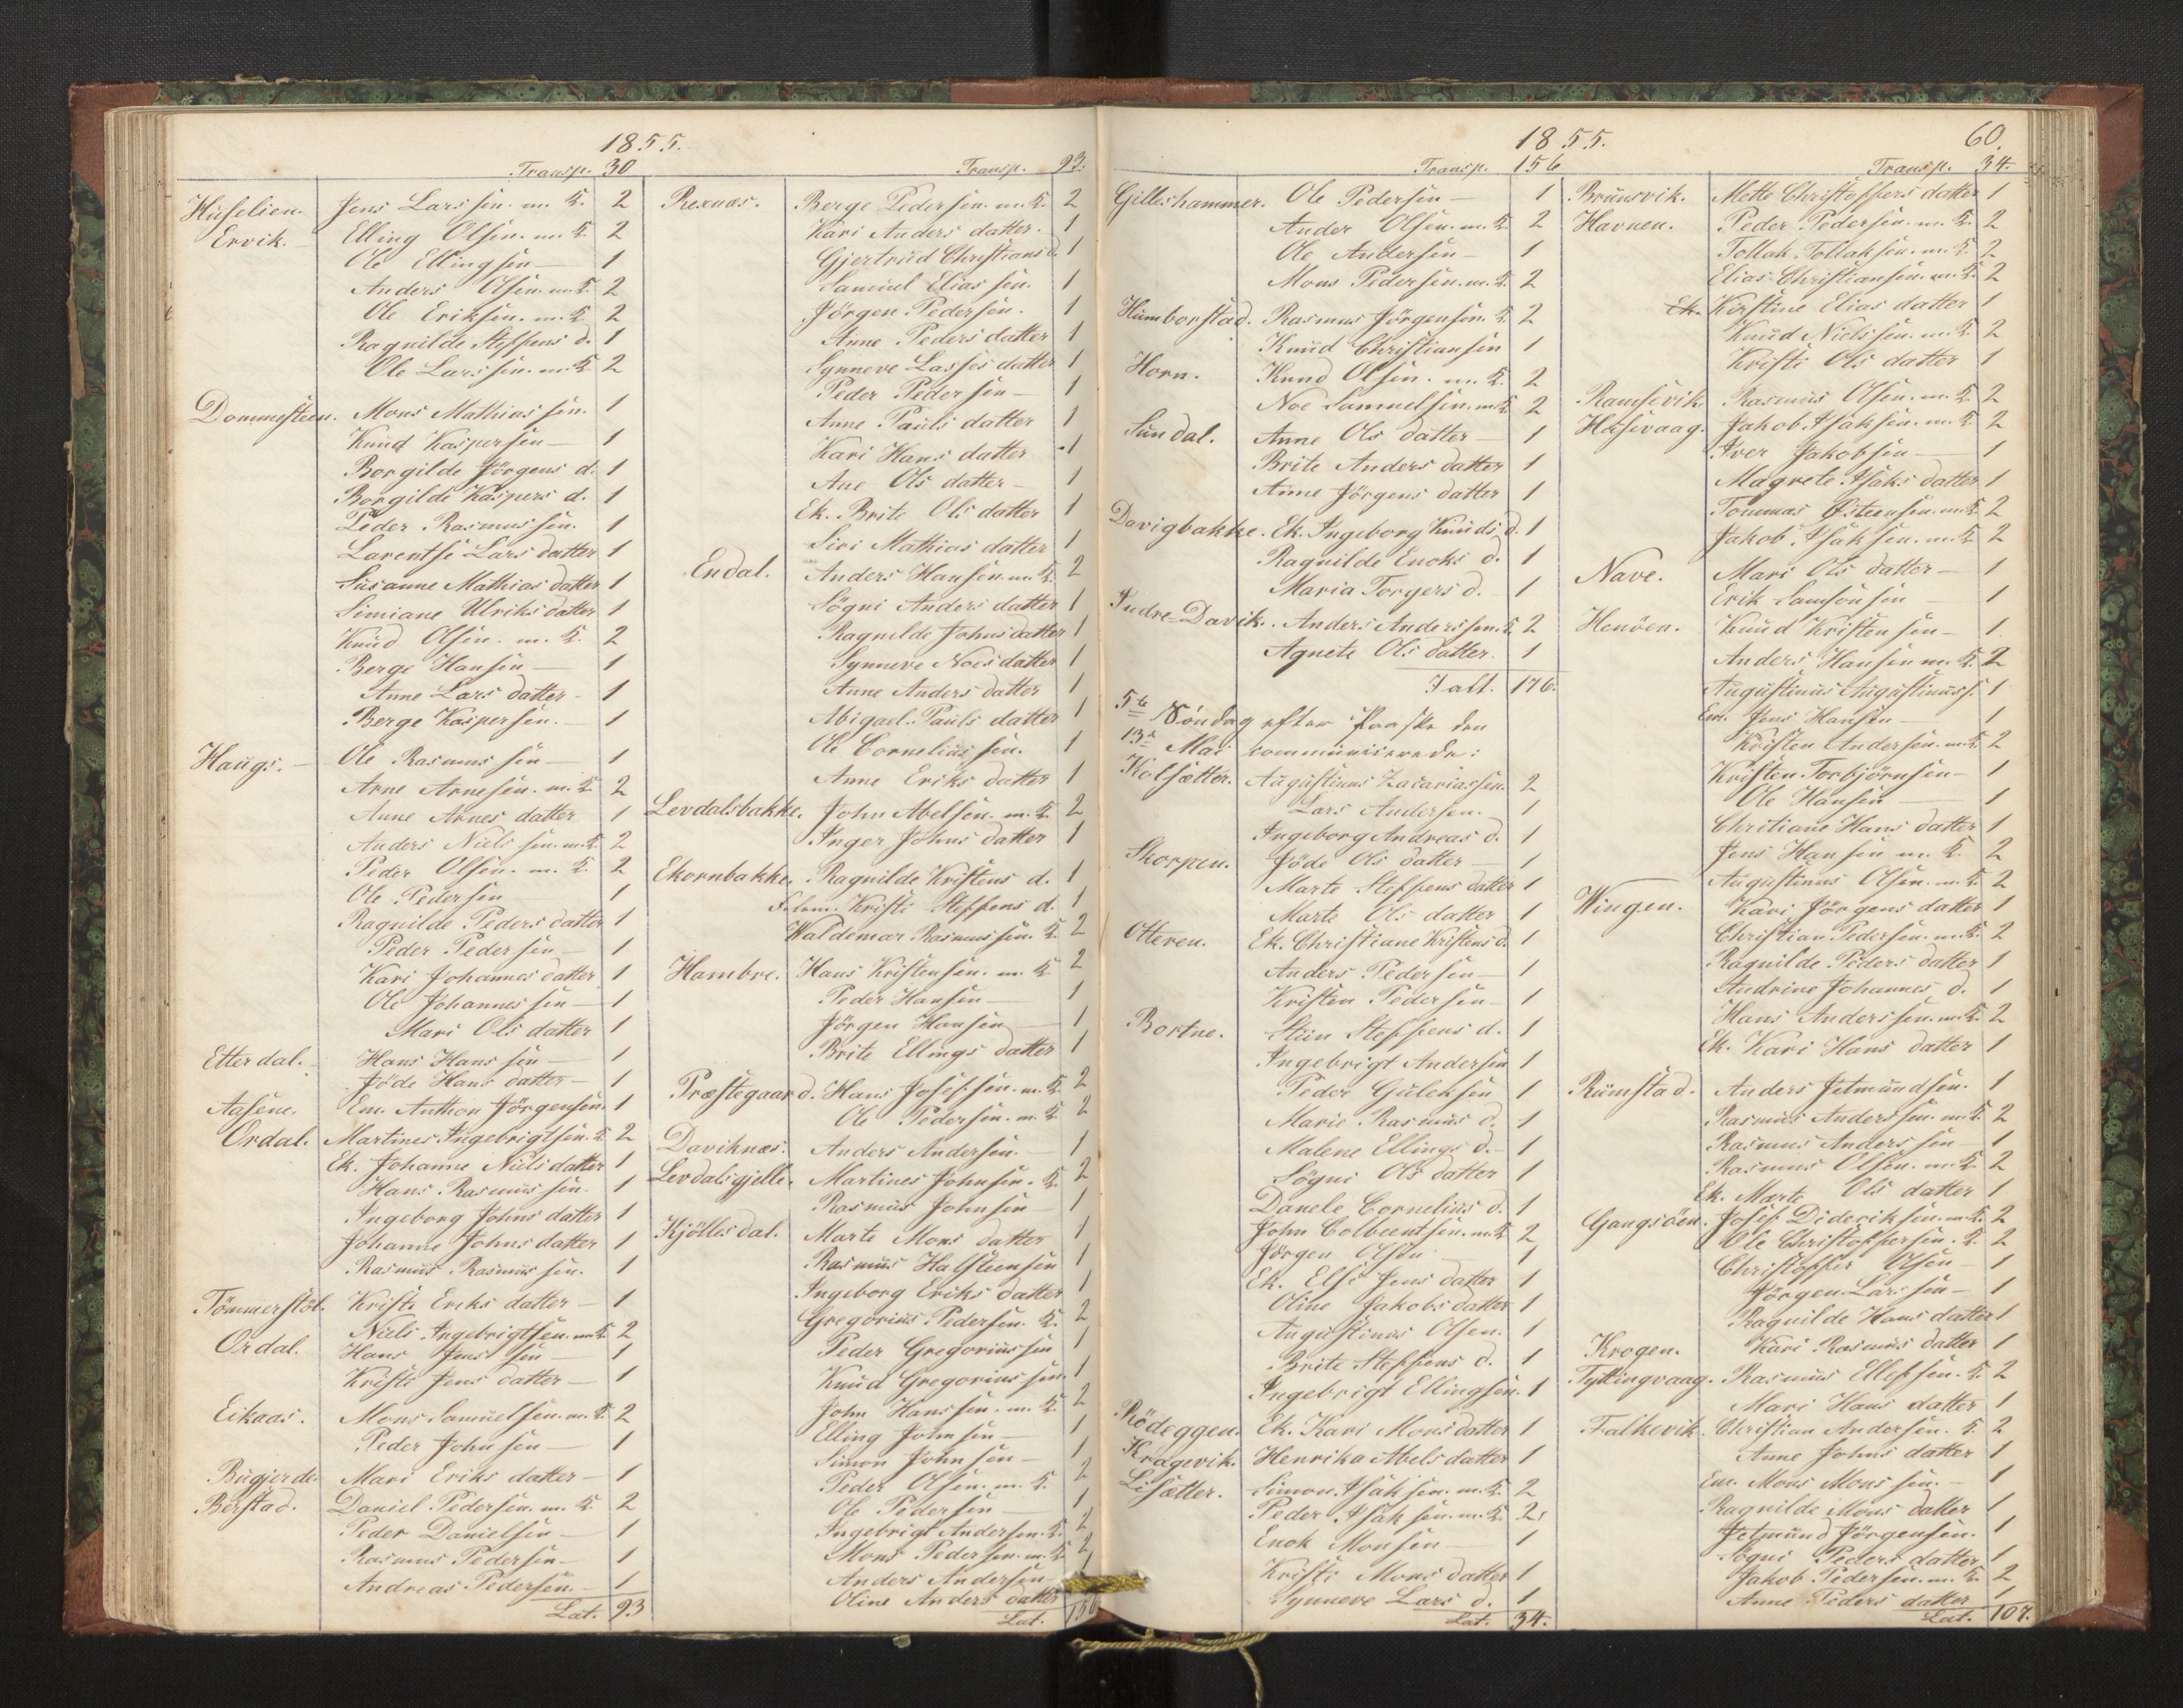 1855.
Transp. 30
Huselien. Jens Larssen. m. K. 2
Ervik. Elling Olsen. m. K. 2
Ole Ellingsen 1
Anders Olsen m. K. 2
Ole Eriksen. m. K. 2
Ragnilde Steffens d. 1
Ole Larssen. m. K. 2
Dommesteen. Mons Mathiassen. 1
Knud Kaspersen 1
Borgilde Jörgens d. 1
Borgilde Kaspers d. 1
Peder Rasmussen. 1
Larentse Lars datter 1
Susanne Mathias datter 1
Simiane Ulriks datter 1
Knud Olsen. m. K. 2
Berge Hansen 1
Anne Lars datter 1
Berge Kaspersen. 1
Haugs. Ole Rasmussen 1
Arne Arnesen. m. K. 2
Anne Arnes datter 1
Anders Nielssen. m. K. 2
Peder Olsen. m. K. 2
Ole Pedersen 1
Ragnilde Peders datter 1
Peder Pedersen 1
Kari Johannes datter 1
Ole Johannessen 1
Mari Ols datter 1
Etterdal. Hans Hanssen 1
Jöde Hans datter 1
Aasene. Em. Anthon Jörgensen. 1
Ordal. Martines Ingebrigtsen. K. 2
Ek. Johanne Niels datter 1
Hans Rasmussen. 1
Ingeborg Johns datter 1
Johanne Johns datter 1
Rasmus Rasmussen. 1
Tömmerstöl. Kristi Eriks datter 1
Niels Ingebrigtsen. m. K. 2
Ordal. Hans Jenssen 1
Kristi Jens datter 1
Eikaas. Mons Samuelsen. m. K. 2
Peder Johnsen 1
Bugjerde. Mari Eriks datter 1
Berstad. Daniel Pedersen. m. K. 2
Peder Danielsen 1
Rasmus Pedersen 1
Andreas Pedersen. 1
Lat. 93
Transp. 93.
Rexnæs. Berge Pedersen. m. K. 2
Kari Anders datter. 1
Gjertrud Christians d. 1
Samuel Eliassen. 1
Jörgen Pedersen. 1
Anne Peders datter 1
Synneve Lasses datter 1
Peder Pedersen 1
Anne Pauls datter 1
Kari Hans datter 1
Ane Ols datter 1
Ek. Brite Ols datter 1
Siri Mathias datter 1
Endal. Anders Hansen. m. K. 2
Sögni Anders datter 1
Ragnilde Johns datter 1
Synneve Noes datter 1
Anne Anders datter 1
Abigael Pauls datter 1
Ole Corneliussen. 1
Anne Eriks datter 1
Levdalsbakke. John Abelsen. m. K. 2
Inger Johns datter 1
Ekornbakke. Ragnilde Kristens d. 1
Kristi Steffens d. 1
Waldemar Rasmussen. K. 2
Hambre. Hans Kristensen. m. K. 2
Peder Hansen 1
Jörgen Hansen 1
Brite Ellings datter 1
Præstegaard. Hans Josefsen. m. K. 2
Ole Pedersen. m. K. 2
Daviknæs. Anders Andersen. 1
Levdalsgjelle. Martines Johnsen. K. 2
Rasmus Johnsen 1
Kjöllesdal. Marte Mons datter 1
Rasmus Halsteensen 1
Ingeborg Eriks datter 1
Gregorius Pedersen. K. 2
Peder Gregoriussen 1
Knud Gregoriussen. 1
John Hanssen. m. K. 2
Elling Johnsen 1
Simon Johnsen 1
Peder Olsen. m. K. 2
Ole Pedersen 1
Ingebrigt Andersen. K. 2
Mons Pedersen. m. K. 2
Anders Andersen 1
Oline Anders datter
Lat. 156
1855. 60.
Transp. 156
Gilleshammer. Ole Pedersen 1
Ander Olsen. m. K. 2
Ole Andersen 1
Mons Pedersen. m. K. 2
Humborstad. Rasmus Jörgensen. K. 2
Knud Christiansen 1
Horn. Knud Olsen. m. K. 2
Noe Samuelsen. m. K. 2
Sundal. Anne Ols datter 1
Brite Anders datter 1
Anne Jörgens datter 1
Davigbakke. Ek. Ingeborg Knuds d. 1
Ragnilde Enoks d. 1
Maria Torgers d. 1
Indre-Davik. Anders Anderssen. K. 2
Agnete Ols datter. 1
I alt. 176.
5te Söndag efter Paaske den
13de Mai communiserede:
Kolsætter. Augustinus Zacariassen. 2
Lars Andersen. 1
Ingeborg Andreas d. 1
Skorpen. Jöde Ols datter 1
Marte Steffens datter 1
Marte Ols datter 1
Otteren. Ek. Christiane Kristens d. 1
Anders Pedersen 1
Kristen Pedersen 1
Bortne. Steffens d. 1
Ingebrigt Andersen 1
Peder Guleksen 1
Marie Rasmus d. 1
Malene Ellings d. 1
Sögni Ols datter 1
Danele Cornelius d. 1
John Colbeentsen. m. K. 2
Jörgen Olsen 1
Ek. Else Jens datter 1
Oline Jakobs datter 1
Augustinus Olsen. 1
Brite Steffens d. 1
Ingebrigt Ellingsen. 1
Rödeggen. Ek. Kari Mons datter 1
Kragevik. Henrika Abels datter 1
Lisætter. Simon Isaksen. m. K. 2
Peder Isaksen. m. K. 2
Enok Monsen 1
Kristi Mons datter 1
Synneve Lars d. 1
Lat. 34.
Transp. 34.
Brunsvik. Mette Christoffers datter 1
Havnen. Peder Pedersen. m. K. 2
Tollak Tollaksen. m. K. 2
Elias Christiansen. m. K. 2
Ek. Kirstine Elias datter 1
Knud Nielssen. m. K. 2
Kristi Ols datter 1
Ramsevik Rasmus Olsen. m. K. 2
Husevaag. Jakob Isaksen. m. K. 2
Iver Jakobsen 1
Magrete Isaks datter 1
Tommas Östensen. m. K. 2
Jakob Isaksen. m. K. 2
Nave. Mari Ols datter 1
Erik Samsonsen 1
Henöen. Knud Kristensen 1
Anders Hansen m. K. 2
Augustinus Augustinuss. 1
Em. Jens Hansen 1
Kristen Andersen. m. K. 2
Kristen Torbjörnsen 1
Ole Hansen 1
Chritiane Hans datter 1
Jens Hansen m. K. 2
Augustinus Olsen. m. K. 2
Wingen. Kari Jörgens datter 1
Christian Pedersen. m. K. 2
Ragnilde Peders datter 1
Andrine Johannes d. 1
Hans Anderssen. m. K. 2
Ek. Kari Hans datter 1
Rumstad. Anders Jetmundsen. 1
Rasmus Anderssen. m. K. 2
Rasmus Anderssen 1
Rasmus Olsen. m. K. 2
Ek. Marte Ols datter 1
Gangsöen. Josef Dideriksen. m. K. 2
Ole Christoffersen. K. 2
Christoffer Olsen 1
Jörgen Larssen 1
Ragnilde Hans datter 1
Krogen. Kari Rasmus datter 1
Tyttingvaag. Rasmus Ellefsen. K. 2
Mari Hans datter 1
Falkevik. Christian Andersen. K. 2
Anne Johns datter 1
Em. Mons Monssen. 1
Ragnilde Mons datter 1
Jetmund Jörgensen. 1
Sögni Peders datter 1
Jakob Pedersen. m. K. 2
Anne Peders datter 1
Lat. 107.